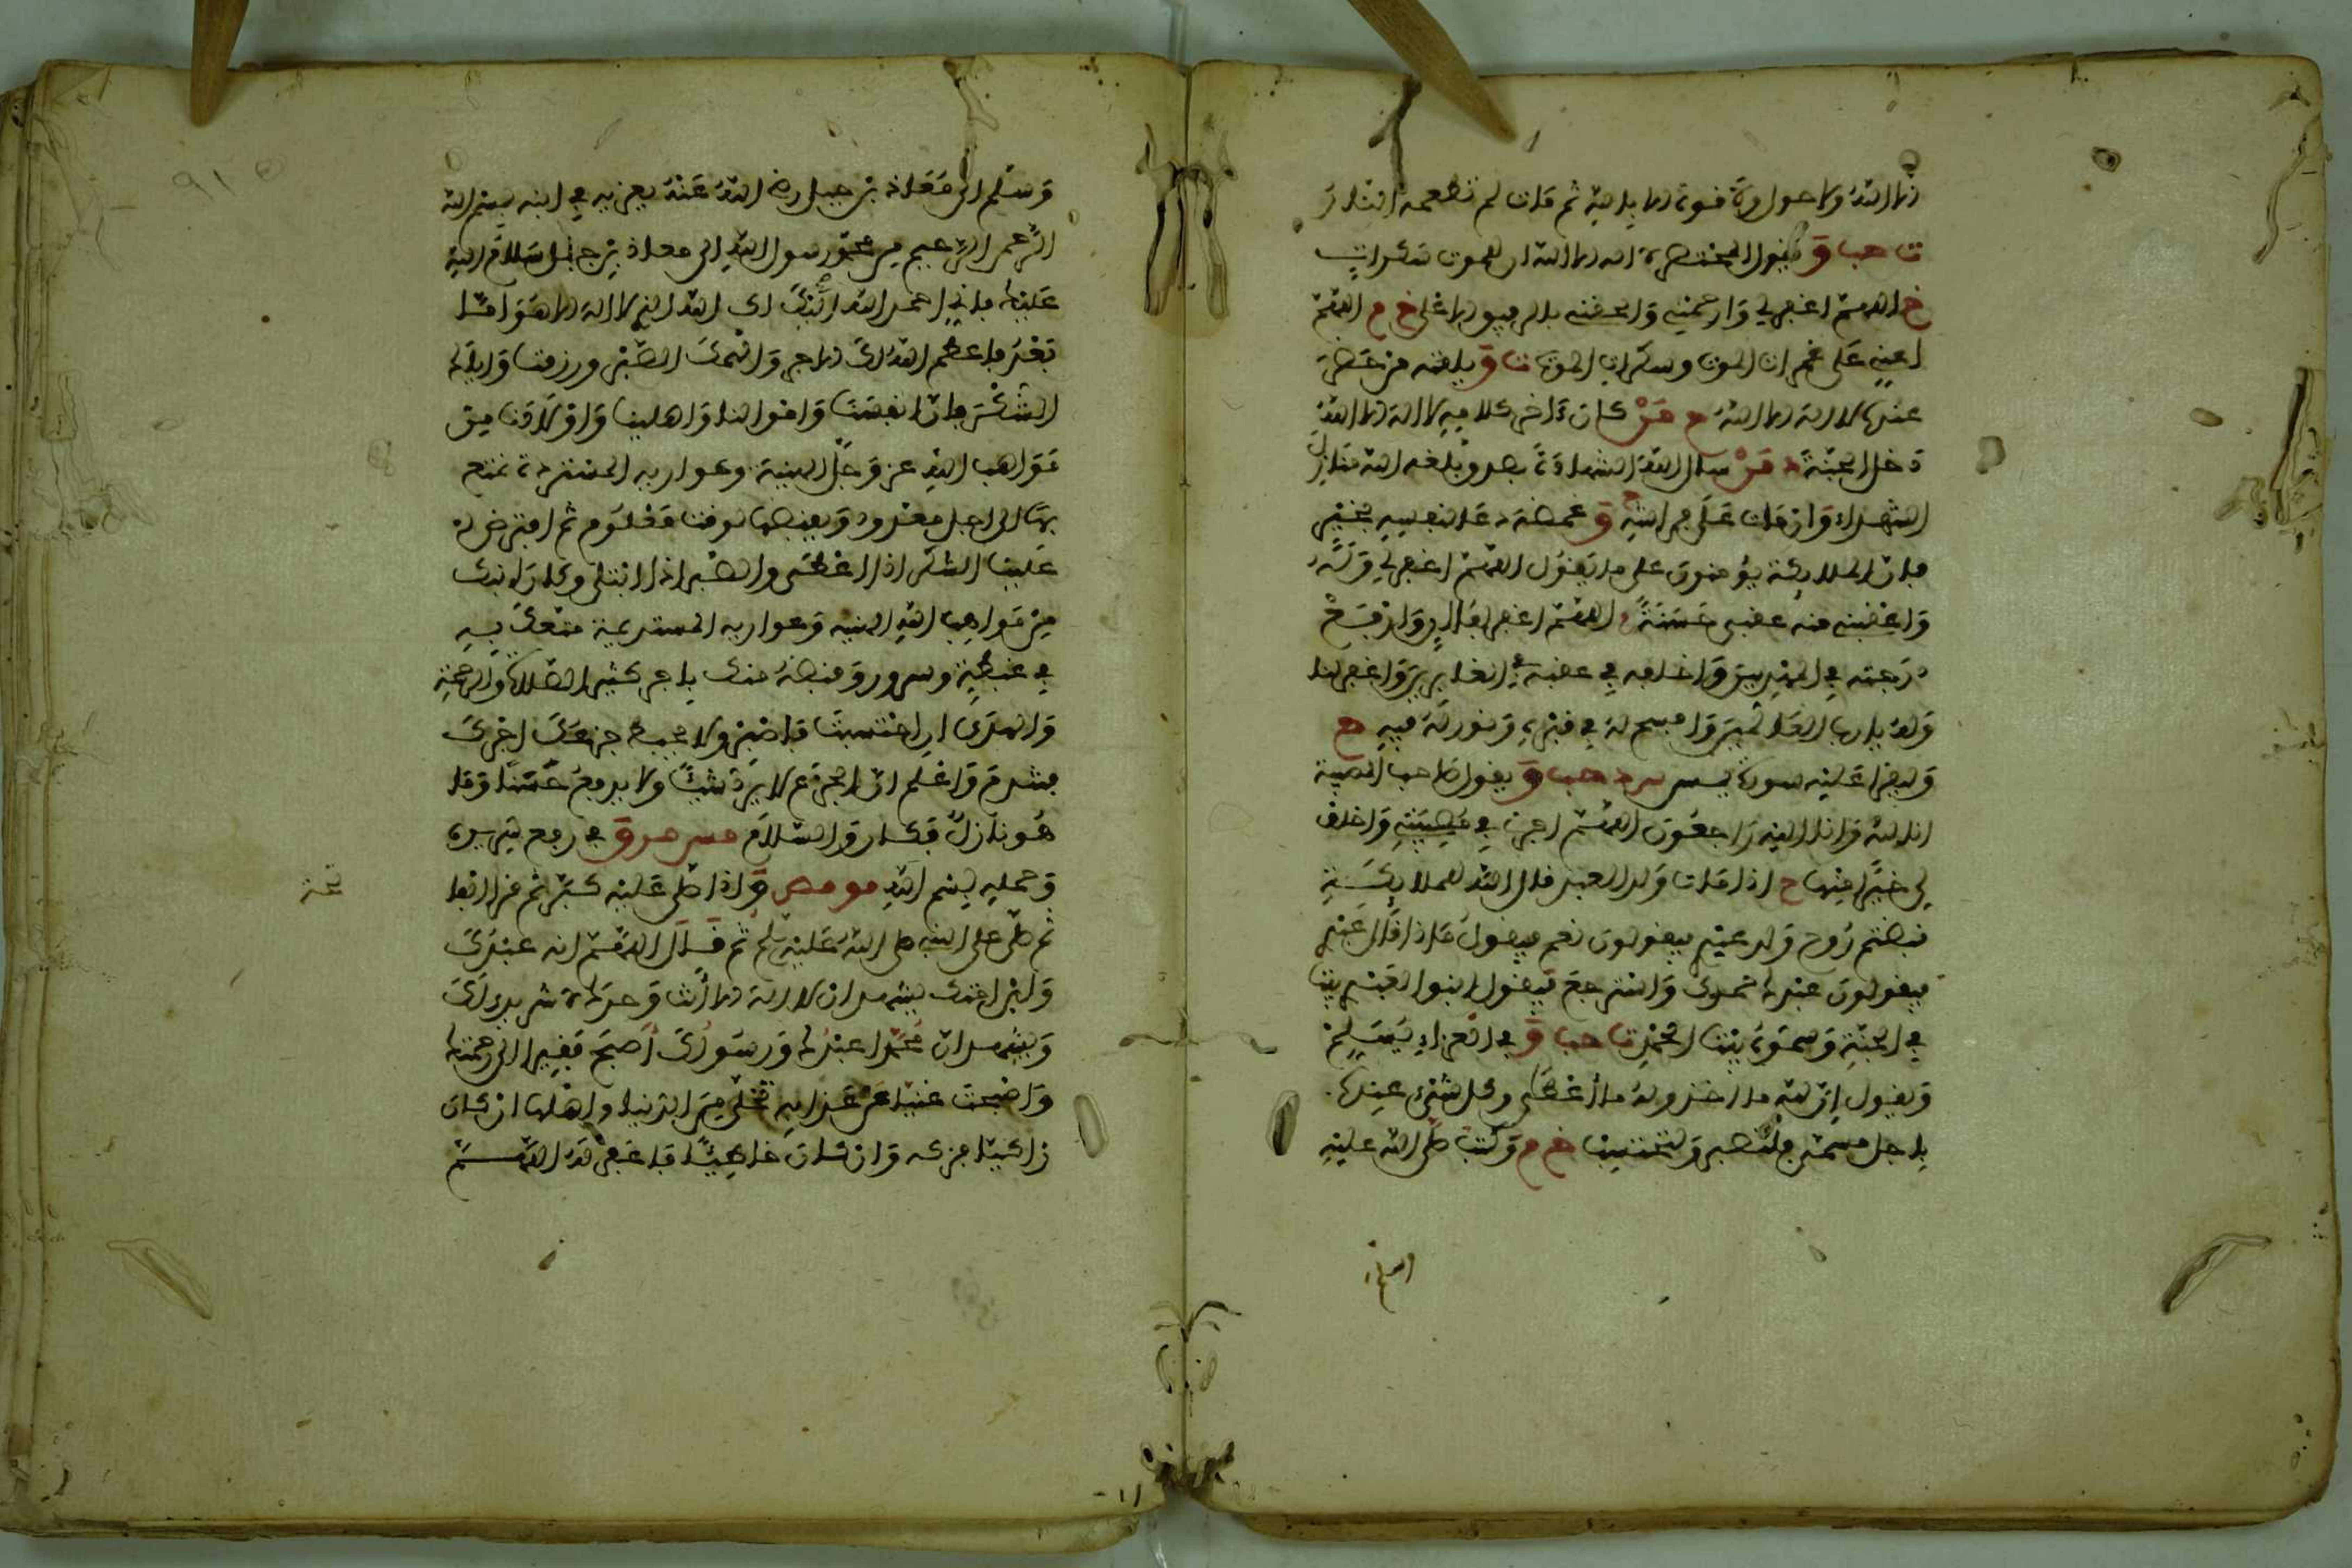 الا الله ولا حول ولا قوة الا بالله ثم مات لم تطعمه النار
ت حب ق ويقول المحتضر لا اله الا الله ان للموت سكرات
خ اللهم اغفر لي وارحمني والحقني بالرفيق الاعلى خ م اللهم
اعني على غمرات الموت وسكرات الموت ت ق يلقنه من حضر
عنده لا اله الا الله م من كان ءاخر كلامه لا اله الا الله
دخل الجنة د من سال الله الشهادة بصدق بلغه الله منازل
الشهداء وان مات على فراشه م ق غمضه دعا لنفسه بخير
فان الملائكة يؤمنون على ما يقول اللهم اغفر لي وله
واعقبني منه عقبى حسنة اللهم اغفر لفلان وارفع
درجته في المهديين واخلفه في عقبه في الغابرين واغفر لنا
وله يا رب العالمين وافسح له في قبره ونور له فيه م
وليقرا عليه سورة يس س د حب ق يقول صاحب المصيبة
انا لله وانا اليه راجعون اللهم اجرني في مصيبتي واخلف
لي خيرا منها م اذا مات ولد العبد قال الله للملائكة
قبضتم روح ولد عبدي فيقولون نعم فيقول ماذا قال عبدي
فيقولون عبدك حمدك واسترجع فيقول ابنوا لعبدي بيتا
في الجنة وسموه بيت الحمد ت حب ق في العزاء يسلم
ويقول ان لله ما اخذ وله ما اعطى وكل شيء عنده
باجل مسمى فلتصبر ولتحتسب خ م وكتب صلى الله عليه
وسلم الى معاذ بن جبل رضي الله عنه يعزيه في ابنه بسم الله
الرحمن الرحيم من محمد رسول الله الى معاذ بن جبل سلام الله
عليك فاني احمد الله اليك الله الذي لا اله الا هو اما
بعد فاعظم الله لك الاجر والهمك الصبر ورزقنا واياك
الشكر فان انفسنا واموالنا واهلينا واولادنا من
مواهب الله عز وجل الهنية وعواريه المستردة نمتع
بها الى اجل معدود ويقبضها لوقت معلوم ثم افترض
علينا الشكر اذا اعطى والصبر اذا ابتلى وكان ابنك
من مواهب الله الهنيه وعواريه المستردعة متعك به
في غبطة وسرور وقبضه منك باجر كثير الصلاة والرحمة
والهدى ان احتسبت فاصبر ولا يحبط جزعك اجرك
فتندم واعلم ان الجزع لا يرد شيئا ولا يدفع حزنا وما
هو نازل فكان والسلام مس مر ق في رفع سريره
وحمله بسم الله مو مص ق اذا صلى عليه كبر ثم قرا الفا
ثم صلى على النبي صلى الله عليه سلم ثم قال اللهم انه عبدك
وابن امتك يشهد ان لا اله الا انت وحدك لا شريك لك
ويشهد ان محمدا عبدك ورسولك اصبح فقيرا الى رحمتك
واصبحت غنيا عن عذابه تخلى من الدنيا واهلها ان كان
زاكيا فزكه وان كان خاطيئا فاغفر له اللهم